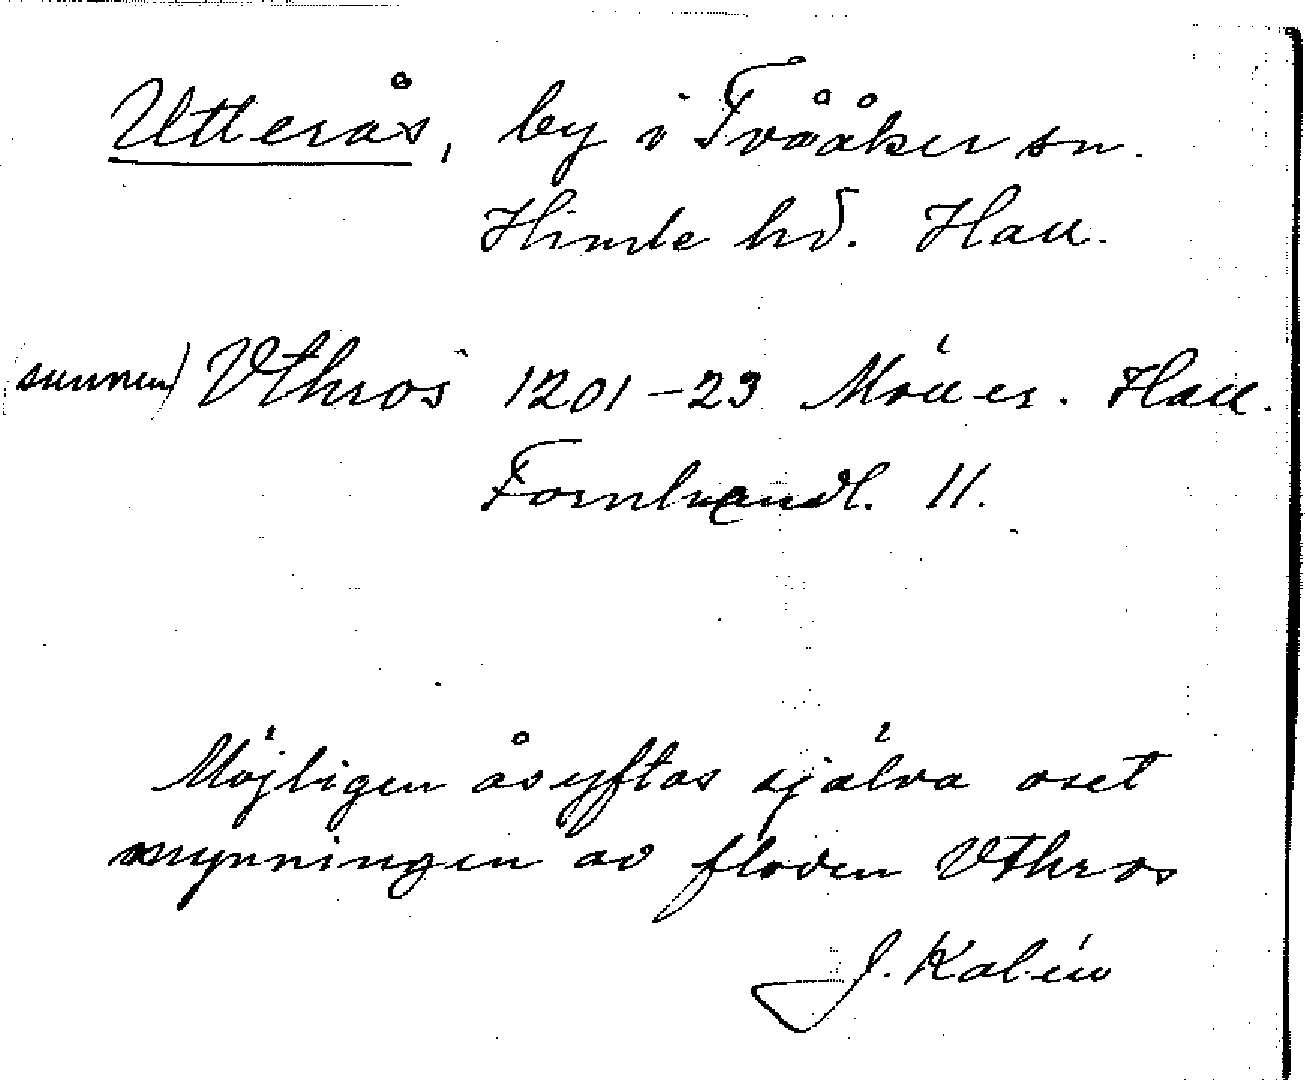 Utterås, by i Tvååker sn.
Himle hd. Hall.
(sunnan) Vthros 1201-23 Möller. Hall.
Fornhandl. 11.
Möjligen åsyftas själva oset
mynningen av floden Vthros
J. Kalén